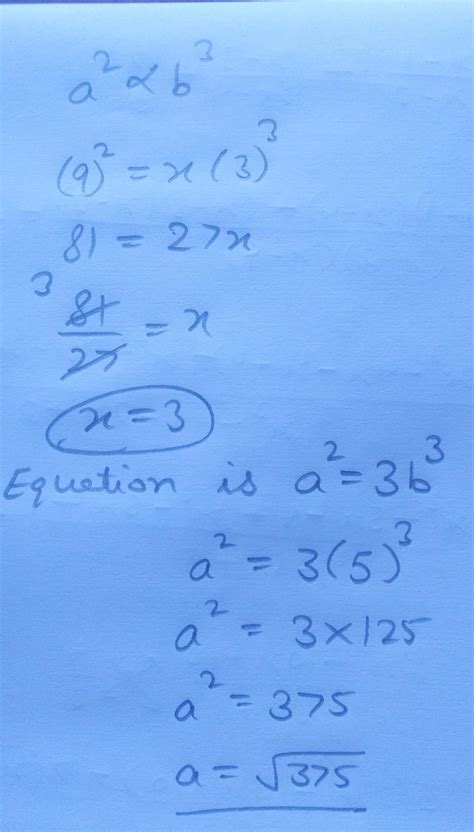 a² ∝ b³
(9)² = x(3)³
81 = 27x
3 81/27 = x
x = 3
Equation is a² = 3b³
a² = 3(5)³
a² = 3×125
a² = 375
a = √375